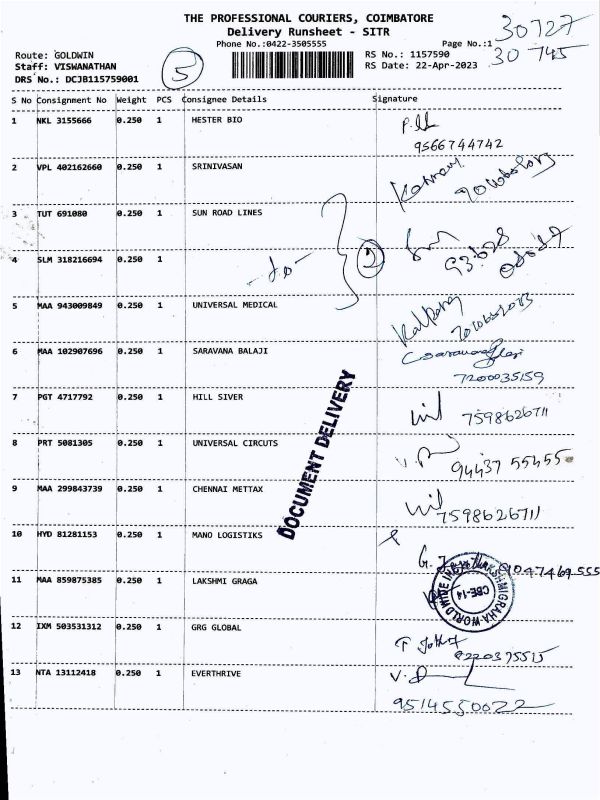 THE PROFESSIONAL COURIERS, COIMBATORE
Delivery Runsheet - SITR
30727
Phone No.:0422-3505555
Page No.:1
30745
Route: GOLDWIN
RS No.: 1157590
Staff: VISWANATHAN
RS Date: 22-Apr-2023
DRS No.: DCJB115759001
5
S No Consignment No Weight PCS Consignee Details Signature
1 NKL 3155666 0.250 1 HESTER BIO
9566744742
2 VPL 402162660 0.250 1 SRINIVASAN
3 TUT 691080 0.250 1 SUN ROAD LINES
4 SLM 318216694 0.250 1
2
5 MAA 943009849 0.250 1 UNIVERSAL MEDICAL
6 MAA 102907696 0.250 1 SARAVANA BALAJI
7200035159
7 PGT 4717792 0.250 1 HILL SIVER
7598626711
8 PRT 5081305 0.250 1 UNIVERSAL CIRCUTS
94437 55455
DOCUMENT DELIVERY
9 MAA 299843739 0.250 1 CHENNAI METTAX
7598626711
10 HYD 81281153 0.250 1 MANO LOGISTIKS
11 MAA 859875385 0.250 1 LAKSHMI GRAGA
CBE-14
12 IXM 503531312 0.250 1 GRG GLOBAL
13 NTA 13112418 0.250 1 EVERTHRIVE
9514550022